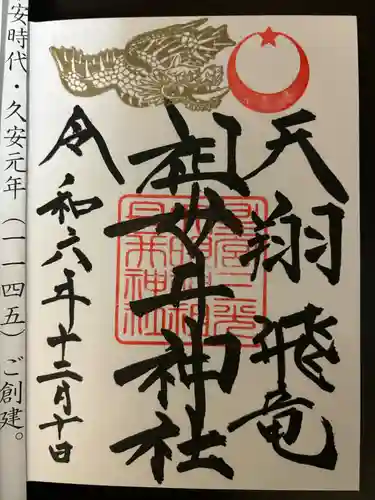 天翔飛竜
祖母井神社
令和六年十二月十日
安時代・久安元年（一一四五）ご創建。